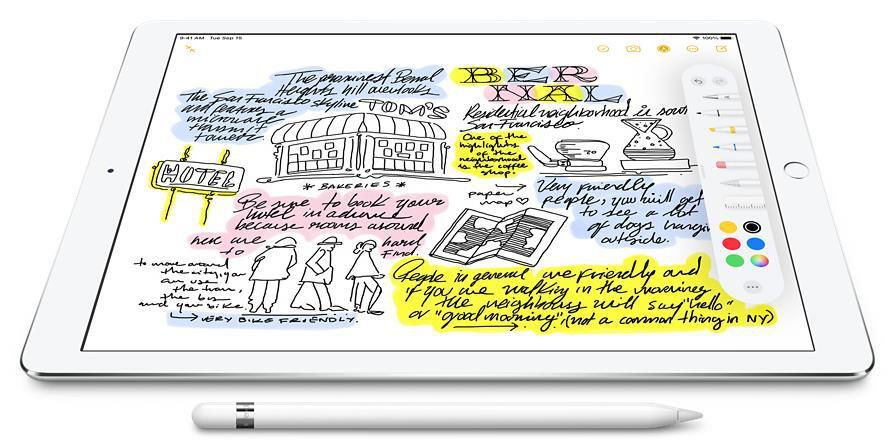 9:41 AM Tue Sep 15
100%
The prominent Bernal
Heights hill overlooks
The San Francisco skyline
and features a
microwave
transmit
tower.
BER
NAL
TOM'S
* BAKERIES *
HOTEL
Residential neighborhood in sout
San Francisco.
One of the
highlights
of the
neighborhood
is the coffee
shop.
paper
map
Very friendly
people, you will get
to see a lot
of dogs hangin
outside.
Be sure to book your
hotel in advance
because rooms around
here are hard
to find.
to move around
the city, you
can use
the train,
the bus
and your bike
VERY BIKE FRIENDLY.
People in general are friendly and
if you are walking in the morning
the neighbors will say "hello"
or "good morning" (not a common thing in NY)